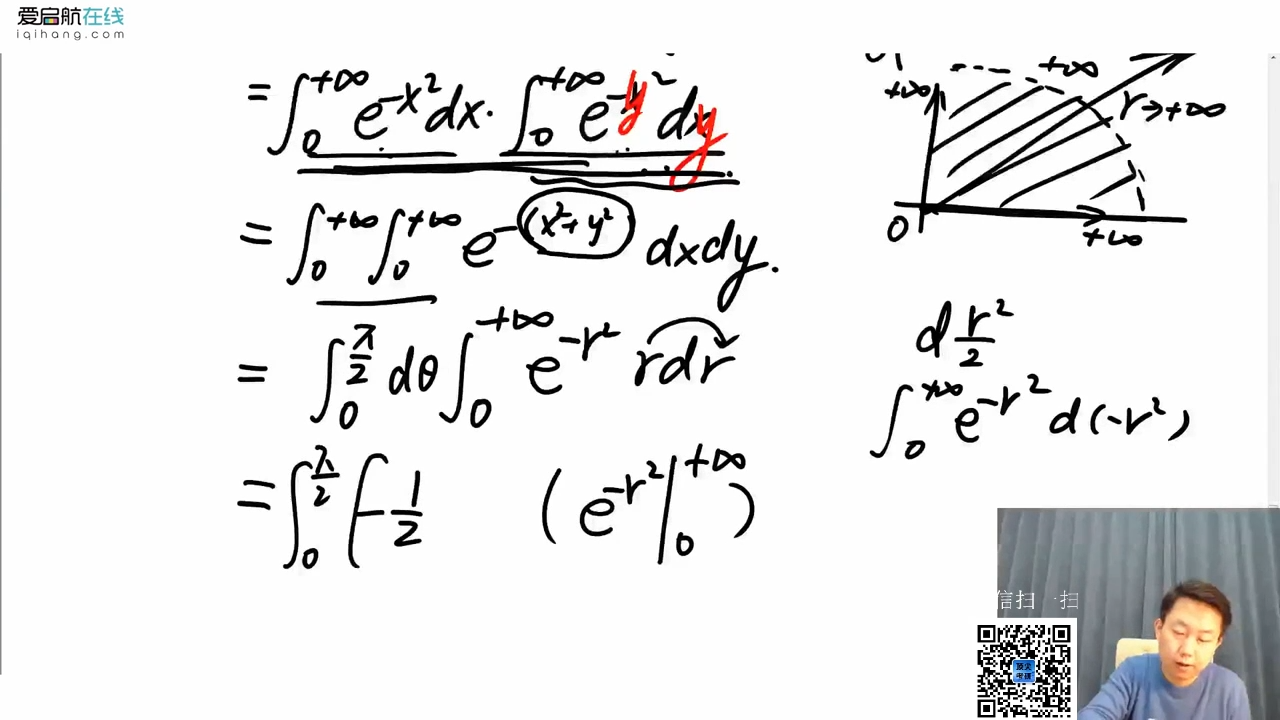 爱启航在线
iqihang.com
= ∫₀^{+∞} e^{-x²}dx · ∫₀^{+∞} e^{-y²}dy
= ∫₀^{+∞} ∫₀^{+∞} e^{-(x²+y²)} dxdy.
= ∫₀^{π/2} dθ ∫₀^{+∞} e^{-r²} rdr
= ∫₀^{π/2} (-1/2 (e^{-r²}|₀^{+∞})
+∞
+∞
r→+∞
0
+∞
d r²/2
∫₀^{+∞} e^{-r²} d(-r²)
信扫一扫